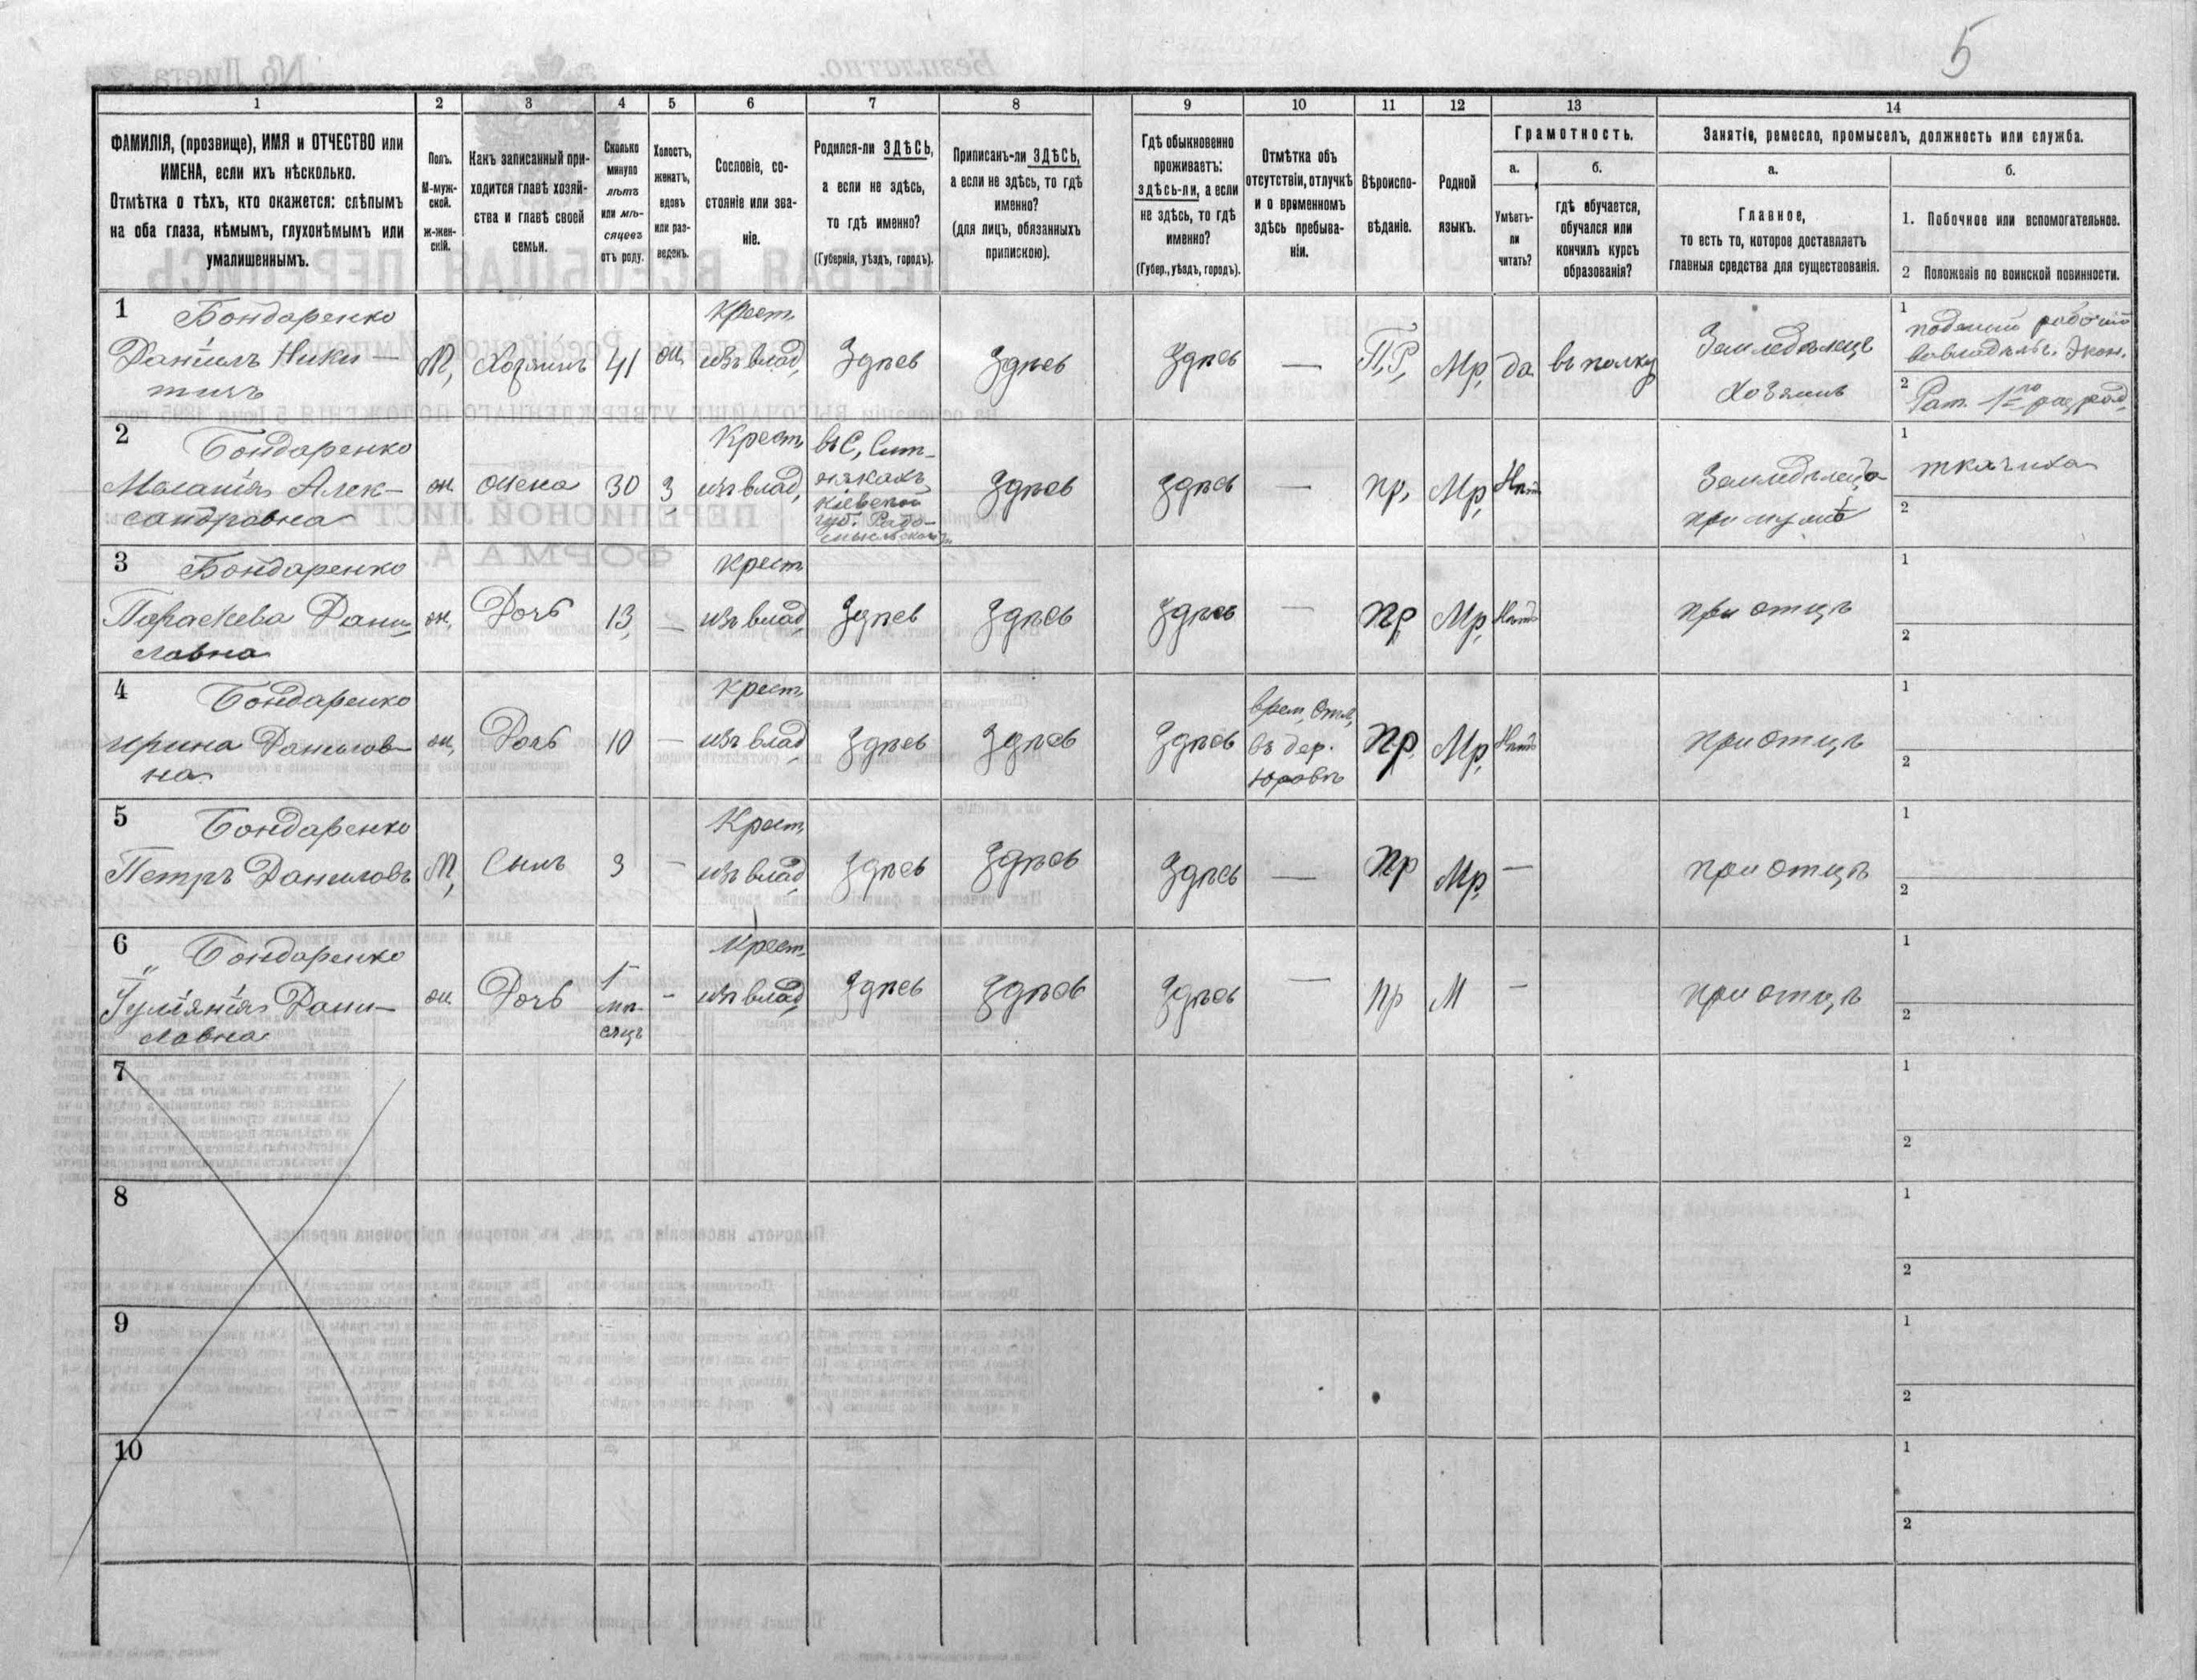 5
1
2
3
4
5
6
7
8
9
10
11
12
13
14
ФАМИЛІЯ, (прозвище), ИМЯ и ОТЧЕСТВО или
ИМЕНА, если ихъ нѣсколько.
Отмѣтка о тѣхъ, кто окажется: слѣпымъ
на оба глаза, нѣмымъ, глухонѣмымъ или
умалишеннымъ.
Полъ.
М-муж-
ской.
ж-жен-
скій.
Какъ записанный при-
ходится главѣ хозяй-
ства и главѣ своей
семьи.
Сколько
минуло
лѣтъ
или мѣ-
сяцевъ
отъ роду.
Холостъ,
женатъ,
вдовъ
или раз-
веденъ.
Сословіе, со-
стояніе или зва-
ніе.
Родился-ли ЗДѢСЬ,
а если не здѣсь,
то гдѣ именно?
(Губернія, уѣздъ, городъ).
Приписанъ-ли ЗДѢСЬ,
а если не здѣсь, то гдѣ
именно?
(для лицъ, обязанныхъ
припискою).
Гдѣ обыкновенно
проживаетъ:
здѣсь-ли, а если
не здѣсь, то гдѣ
именно?
(Губер., уѣздъ, городъ).
Отмѣтка объ
отсутствіи, отлучкѣ
и о временномъ
здѣсь пребыва-
ніи.
Вѣроиспо-
вѣданіе.
Родной
языкъ.
Грамотность.
а.
Умѣетъ-
ли
читать?
б.
гдѣ обучается,
обучался или
кончилъ курсъ
образованія?
Занятіе, ремесло, промыселъ, должность или служба.
а.
Главное,
то есть то, которое доставляетъ
главныя средства для существованія.
б.
1. Побочное или вспомогательное.
2 Положеніе по воинской повинности.
1
Бондаренко
Даніилъ Ники-
тичъ
М,
Хозяинъ
41
ж,
Крест,
изъ влад,
Здѣсь
Здѣсь
Здѣсь
—
П,Р,
Мр,
да
въ полку
Земледѣлецъ
Хозяинъ
1
поденный рабочій
во владѣльч. Экон.
2
Рат. 1го разряд,
2
Бондаренко
Маланія Алек-
сандровна
ж.
жена
30
З,
Крест,
изъ влад,
въ С, Сит-
някахъ
Кіевской
губ. Радо-
мысльского у
Здѣсь
Здѣсь
—
пр,
Мр,
Нѣтъ
Земледѣлица
при мужѣ
1
ткачиха
2
3
Бондаренко
Параскева Дани-
ловна
ж,
Дочь
13,
—
крест
изъ влад,
Здѣсь
Здѣсь
Здѣсь
—
пр,
Мр,
Нѣтъ
при отцѣ
1
2
4
Бондаренко
Ирина Данилов-
на
ж,
Дочь
10
—
крест,
изъ влад,
Здѣсь
Здѣсь
Здѣсь
врем, отл,
въ дер.
Юровкѣ
пр,
Мр,
Нѣтъ
при отцѣ
1
2
5
Бондаренко
Петръ Даниловъ
М,
Сынъ
3
—
Крест,
изъ влад,
Здѣсь
Здѣсь
Здѣсь
—
пр
Мр,
—
при отцѣ
1
2
6
Бондаренко
Іуліянія Дани-
ловна
ж.
Дочь
1
мѣ-
сяцъ
—
Крест,
изъ влад,
Здѣсь
Здѣсь
Здѣсь
—
пр
М
—
при отцѣ
1
2
7
1
2
8
1
2
9
1
2
10
1
2